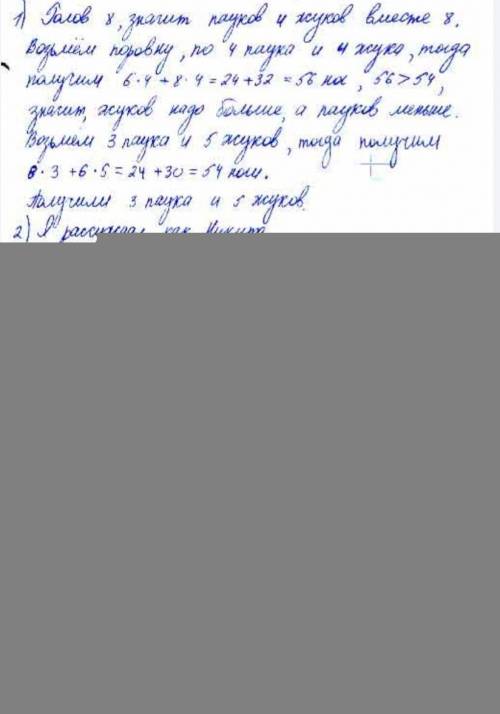 1) Голов 8, значит пауков и жуков вместе 8.
Возьмём поровну, по 4 паука и 4 жука, тогда
получим 6·4 + 8·4 = 24 + 32 = 56 ног, 56 > 54,
значит, жуков надо больше, а пауков меньше.
Возьмём 3 паука и 5 жуков, тогда получим
8·3 + 6·5 = 24 + 30 = 54 ноги.
Получили 3 паука и 5 жуков.
2) Я рассуждал как Никита